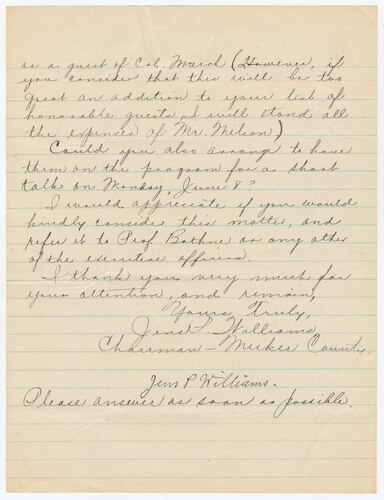 as a guest of Col. March (However, if
you consider that this will be too
great an addition to your list of
honorable guests, I will stand all
the expenses of Mr. Wilson)
Could you also arrange to have
them on the program for a short
talk on Monday, June 8?
I would appreciate if you would
kindly consider this matter, and
refer it to Prof. Bothne or any other
of the executive officers.
I thank you very much for
your attention, and remain,
Yours Truly,
Jens P. Williams
Chairman - Meeker County.
Jens P Williams.
Please answer as soon as possible.